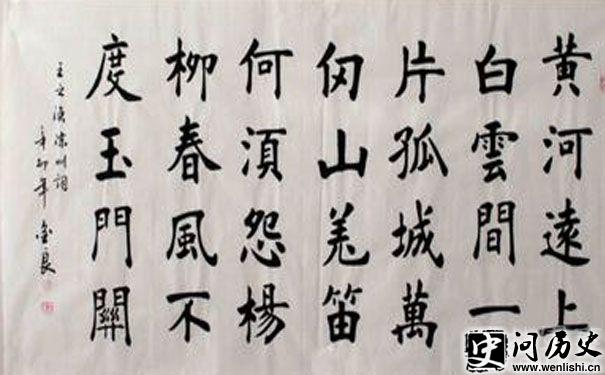 黄河遠上
白雲間一
片孤城萬
仞山羌笛
何須怨楊
柳春風不
度玉門關
王之渙涼州詞
辛卯年 金良
问历史
www.wenlishi.cn